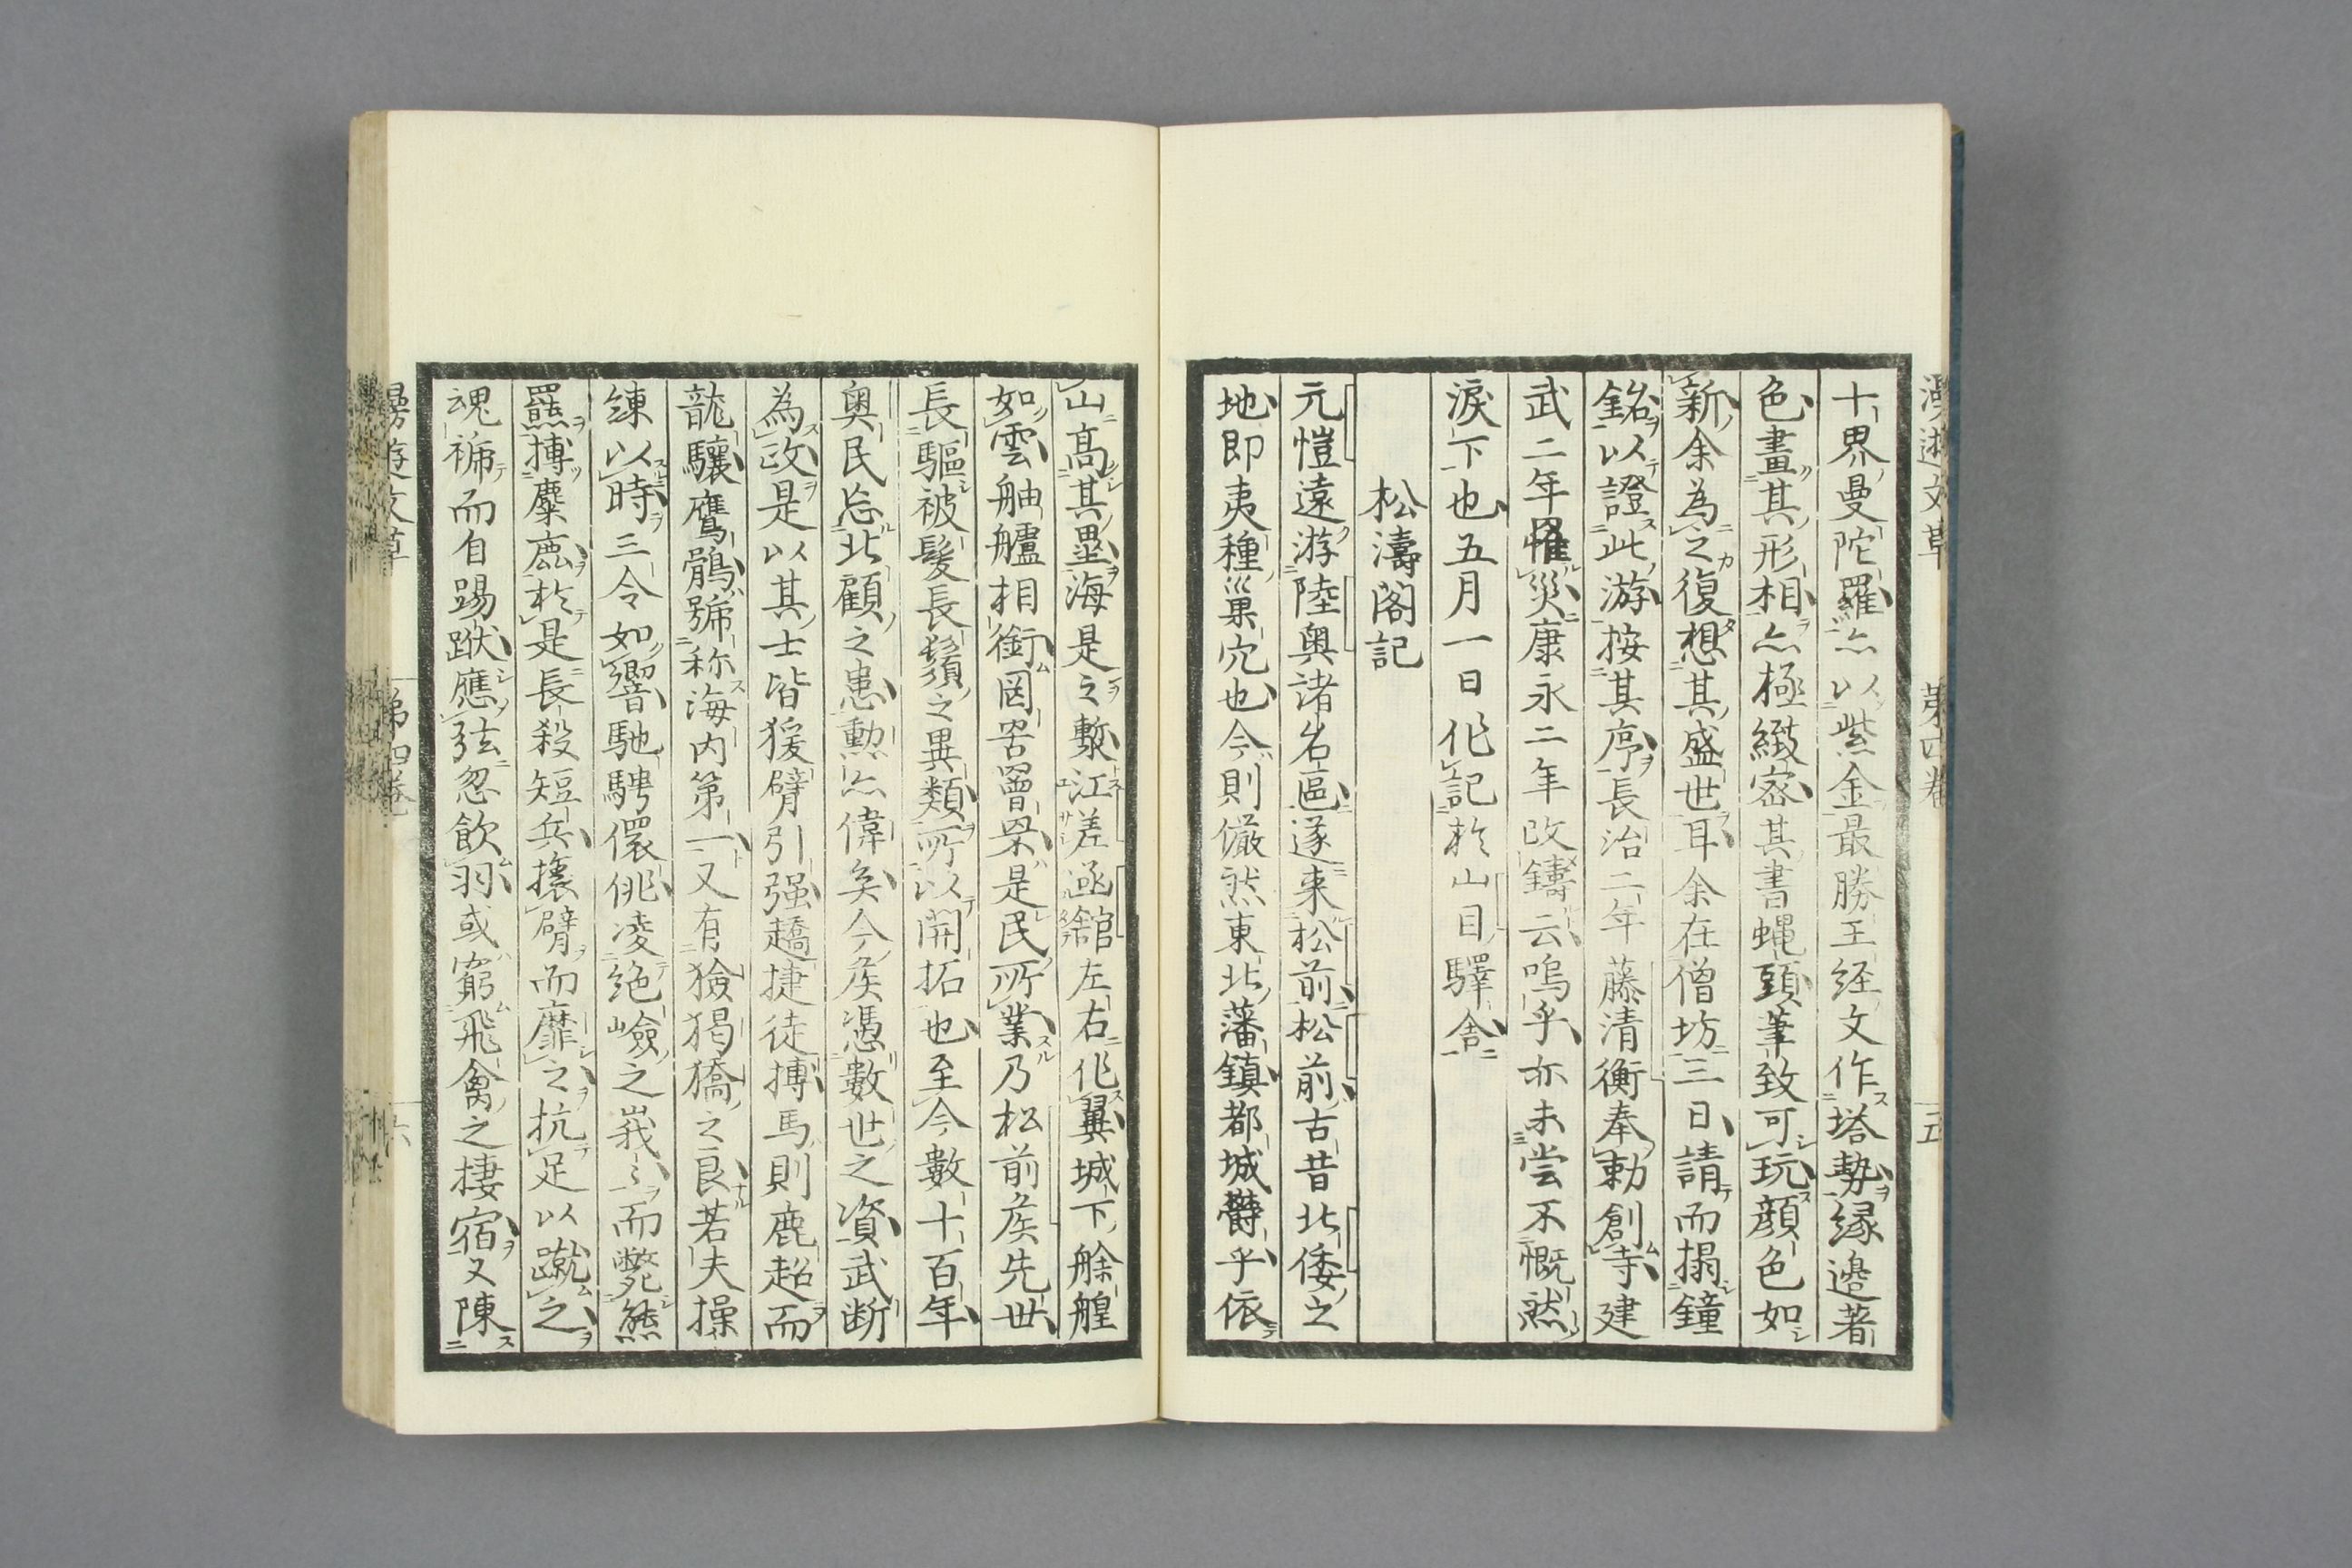 漫遊文草 第四卷 五
十界曼陀羅亦以紫金最勝王経文作塔勢縁邉著
色畫其形相亦極緻宻其書蝿頭筆致可玩顔色如
新余為之復想其盛世耳余在僧坊三日請而搨鐘
銘以證此游按其序長治二年藤清衡奉勅創寺建
武二年罹災康永二年改鑄云嗚乎亦未甞不慨然
淚下也五月一日作記於山目驛舎
松濤閣記
元愷遠游陸奥諸名區遂来松前松前古昔北倭之
地即夷種巣穴也今則儼然東北藩鎮都城欝乎依
山髙其壘海是之塹江差凾舘左右作翼城下艅艎
如雲舳艫相銜罔罟罾罙是民所業乃松前矦先世
長驅被髪長鬚之異類所以開拓也至今數十百年
奥民忘北顧之患勲亦偉矣今矦憑數世之資武断
為政是以其士皆猨臂引强趫捷徒搏馬則鹿超而
龍驤鷹鶻號称海内第一又有獫猲獢之良若夫操
錬以時三令如響馳騁儇佻凌絶嶮之峩〻而斃熊
羆搏麋鹿於是長殺短兵攘臂而靡之抗足以蹴之
魂褫而自踢踧應弦忽飲羽或窮飛禽之捿宿又陳
漫遊文草 第四卷 六